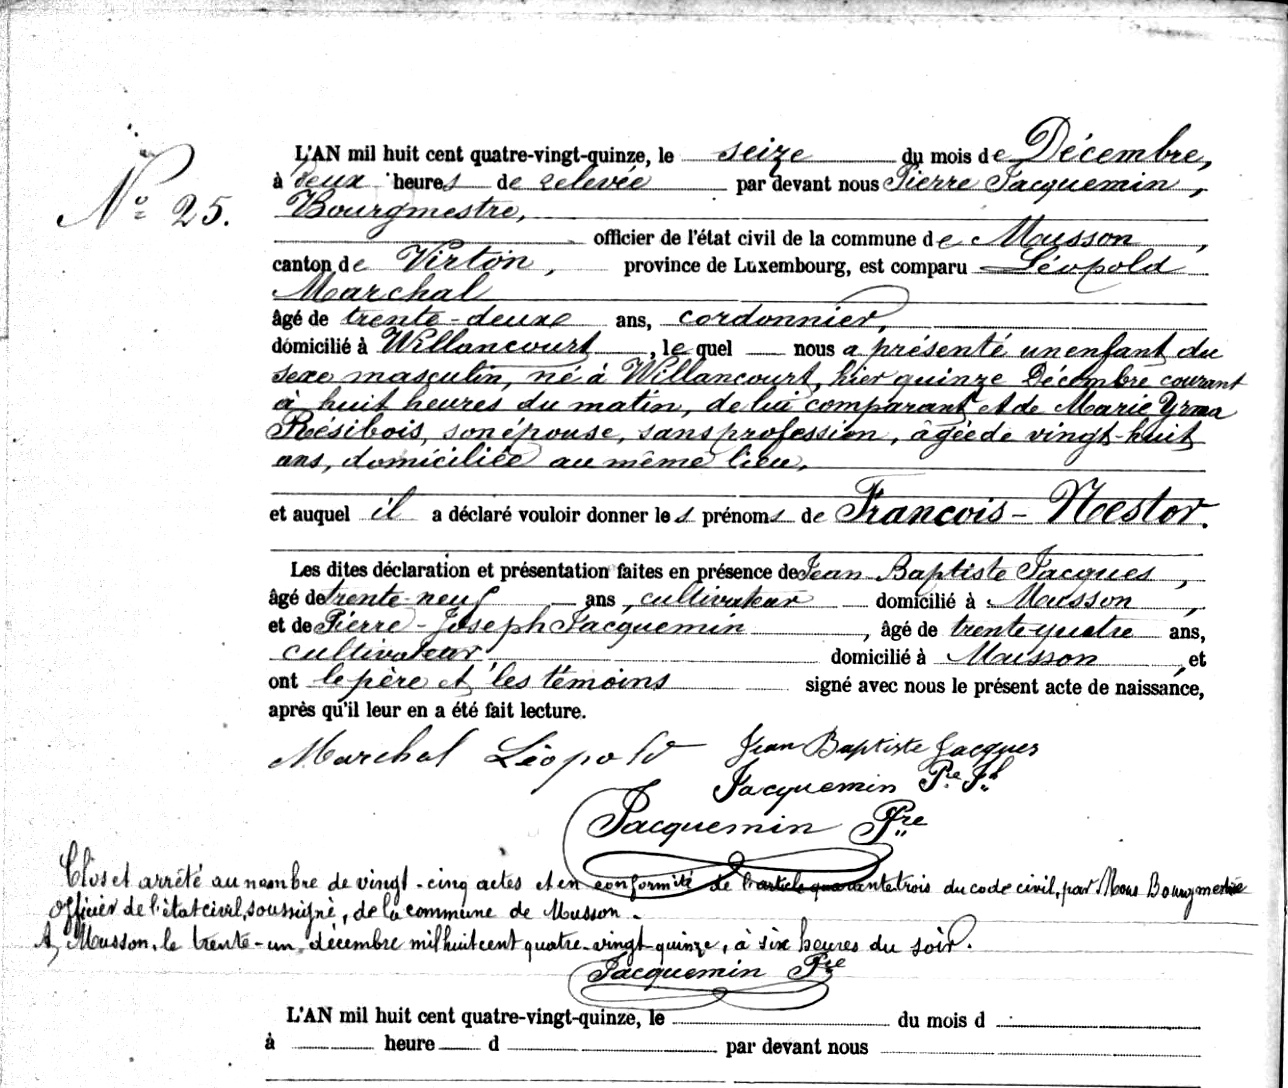 L'AN mil huit cent quatre-vingt-quinze, le seize du mois de Décembre,
à deux heures de relevée par devant nous Pierre Jacquemin,
N° 25.
Bourgmestre,
officier de l'état civil de la commune de Musson,
canton de Virton, province de Luxembourg, est comparu Léopold
Marchal
âgé de trente-deux ans, cordonnier,
domicilié à Willancourt, le quel nous a présenté un enfant du
sexe masculin, né à Willancourt, hier quinze Décembre courant
à huit heures du matin, de lui comparant et de Marie Yrma
Résibois, son épouse, sans profession, âgée de vingt-huit
ans, domiciliée au même lieu,
et auquel il a déclaré vouloir donner les prénoms de François-Nestor.
Les dites déclaration et présentation faites en présence de Jean Baptiste Jacques,
âgé de trente-neuf ans, cultivateur domicilié à Musson,
et de Pierre-Joseph Jacquemin, âgé de trente-quatre ans,
cultivateur, domicilié à Musson, et
ont le père et les témoins signé avec nous le présent acte de naissance,
après qu'il leur en a été fait lecture.
Marchal Léopold Jean Baptiste Jacques
Jacquemin Pre Jh
Jacquemin Pre
Clos et arrêté au nombre de vingt-cinq actes et en conformité de l'article quarante trois du code civil, par Nous Bourgmestre
officier de l'état civil, soussigné, de la commune de Musson.
A Musson, le trente-un décembre mil huit cent quatre-vingt-quinze, à six heures du soir.
Jacquemin Pre
L'AN mil huit cent quatre-vingt-quinze, le du mois d
à heure d par devant nous